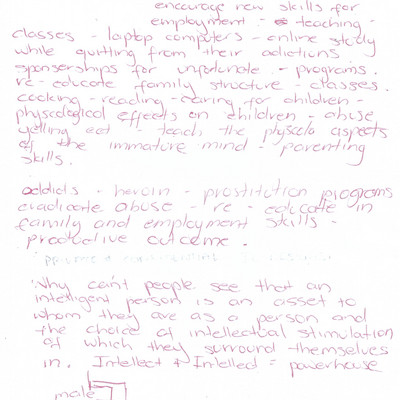 encourage new skills for
employment - teaching -
classes - laptop computers - online study
while quitting from their adictions
sponserships for unfortunate - programs.
re - educate family structure - classes.
cooking - reading - caring for children -
physcological effects on children - abuse
yelling ect - teach the physcolo aspects
of the immature mind - parenting
skills.
addicts - heroin - prostitution programs
eradicate abuse - re - educate in
family and employment skills -
productive outcome.
Why can't people see that an
intelligent person is an asset to
whom they are as a person and
the choice of intellectual stimulation
of which they surround themselves
in. Intellect + Intellect = powerhouse
male